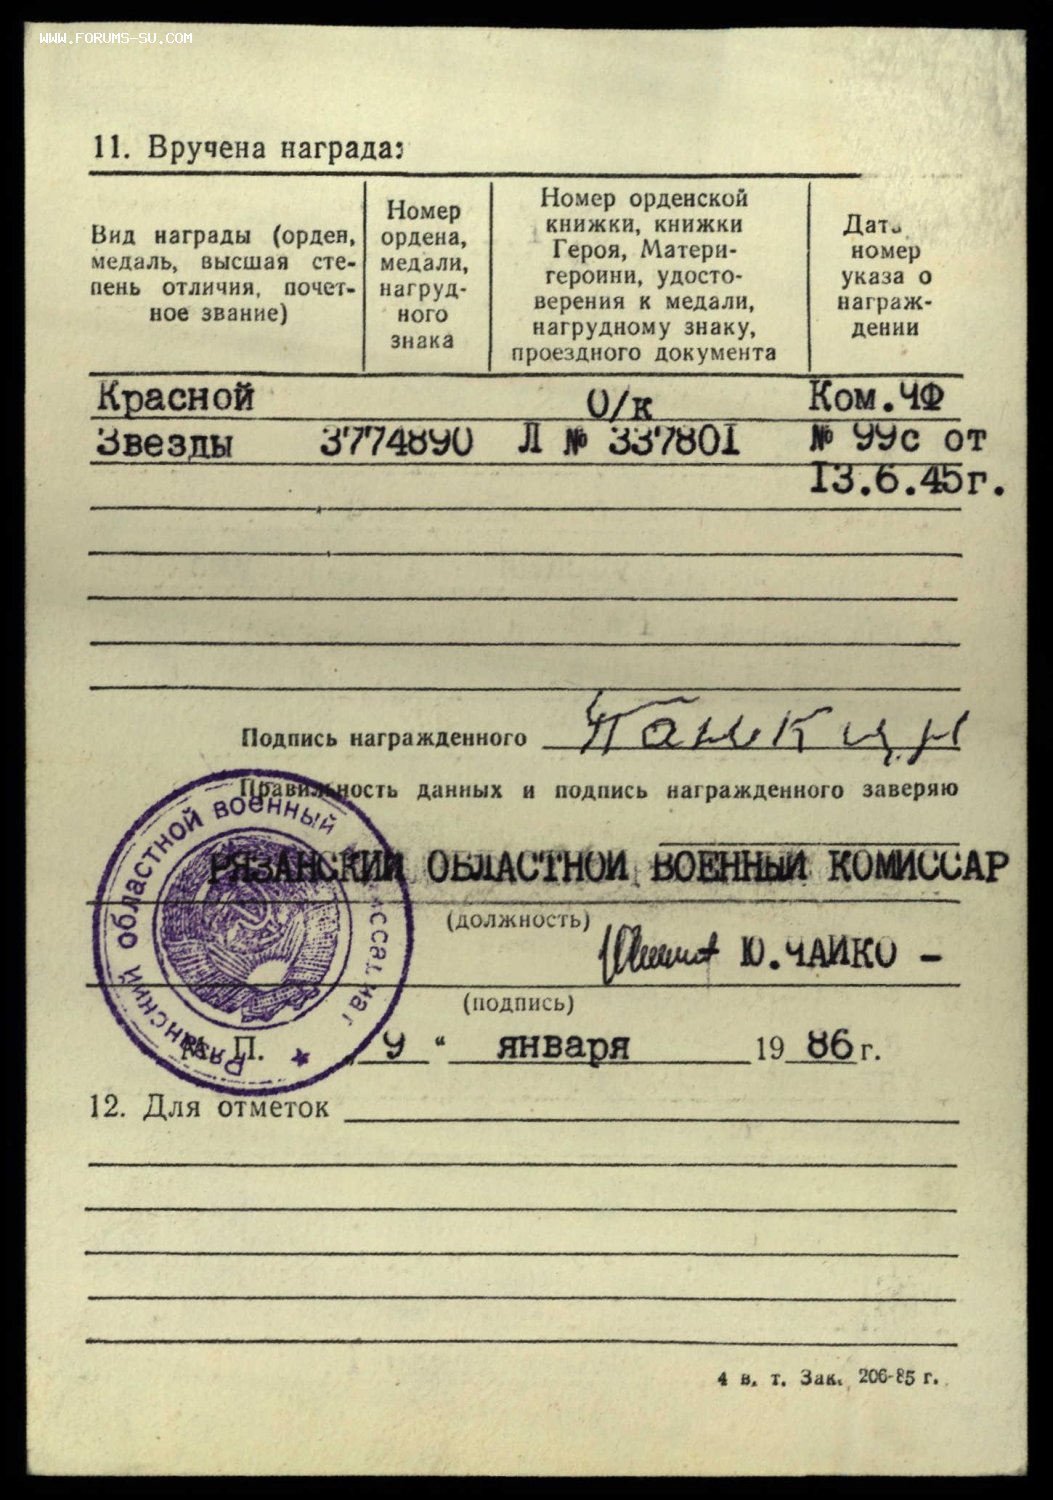 WWW.FORUMS-SU.COM
11. Вручена награда:
Вид награды (орден,
медаль, высшая сте-
пень отличия, почет-
ное звание)
Номер
ордена,
медали,
нагруд-
ного
знака
Номер орденской
книжки, книжки
Героя, Матери-
героини, удосто-
верения к медали,
нагрудному знаку,
проездного документа
Дата,
номер
указа о
награж-
дении
Красной О/к Ком.ЧФ
Звезды 3774890 Л № 337801 № 99с от
13.6.45г.
Подпись награжденного Панкин
Правильность данных и подпись награжденного заверяю
РЯЗАНСКИЙ ОБЛАСТНОЙ ВОЕННЫЙ КОМИССАР
(должность)
Ю.ЧАЙКО -
(подпись)
М. П. „9“ января 1986г.
Рязанский областной военный
12. Для отметок
4 в. т. Зак. 206-85 г.